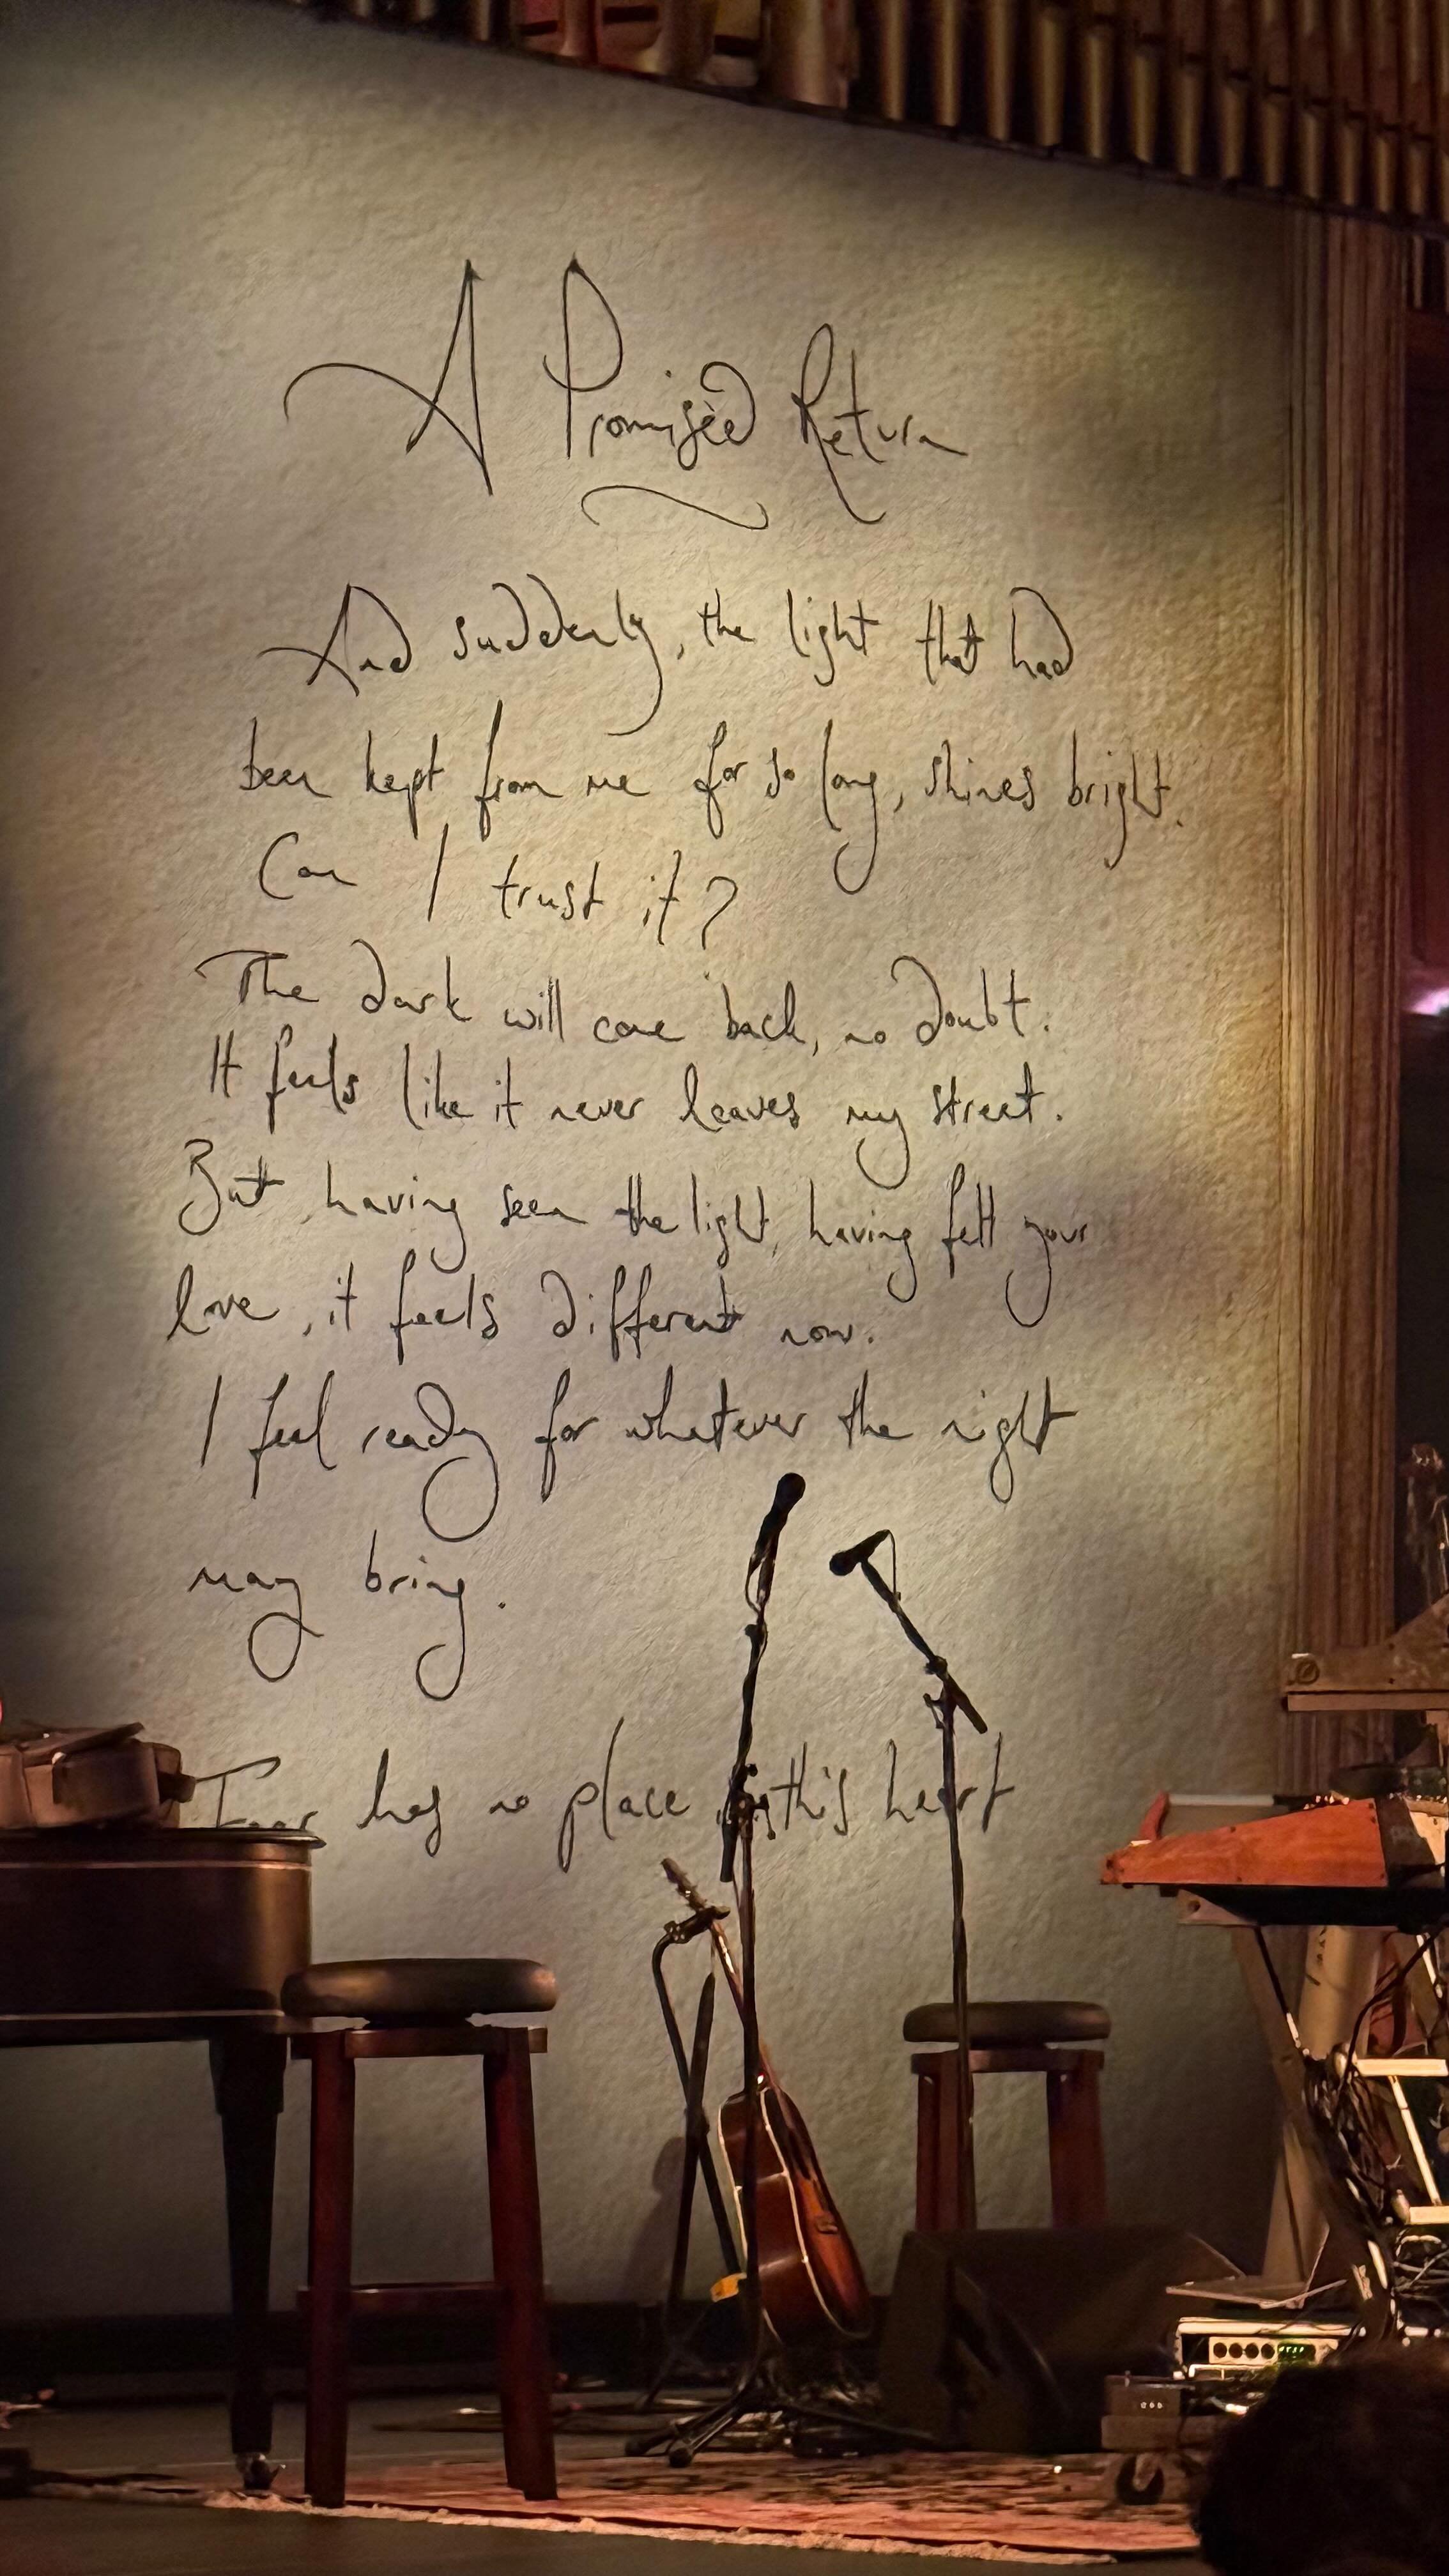 A Promised Return
And suddenly, the light that had
been kept from me for so long, shines bright.
Can I trust it?
The dark will come back, no doubt.
It feels like it never leaves my street.
But, having seen the light, having felt your
love, it feels different now.
I feel ready for whatever the night
may bring.
Fear has no place in this heart